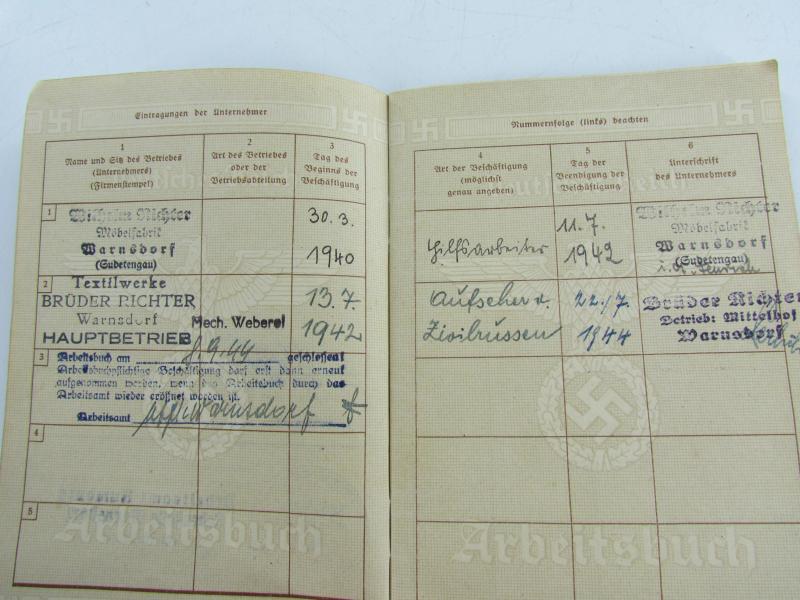 Eintragungen der Unternehmer
1
Name und Sitz des Betriebes
(Unternehmers)
(Firmenstempel)
2
Art des Betriebes
oder der
Betriebsabteilung
3
Tag des
Beginns der
Beschäftigung
1
Wilhelm Richter
Möbelfabrik
Warnsdorf
(Sudetengau)
30. 3.
1940
2
Textilwerke
BRÜDER RICHTER
Warnsdorf
HAUPTBETRIEB
Mech. Weberei
13. 7.
1942
3
Arbeitsbuch am 8.9.44 geschlossen
Arbeitsbuchpflichtige Beschäftigung darf erst dann erneut
aufgenommen werden, wenn das Arbeitsbuch durch das
Arbeitsamt wieder eröffnet worden ist.
Arbeitsamt Warnsdorf
4
5
Arbeitsbuch
Nummernfolge (links) beachten
4
Art der Beschäftigung
(möglichst
genau angeben)
5
Tag der
Beendigung der
Beschäftigung
6
Unterschrift
des Unternehmers
Hilfsarbeiter
11. 7.
1942
Wilhelm Richter
Möbelfabrik
Warnsdorf
(Sudetengau)
Aufseher v.
Zivilrussen
22./7.
1944
Brüder Richter
Betrieb: Mittelhof
Warnsdorf
Arbeitsbuch